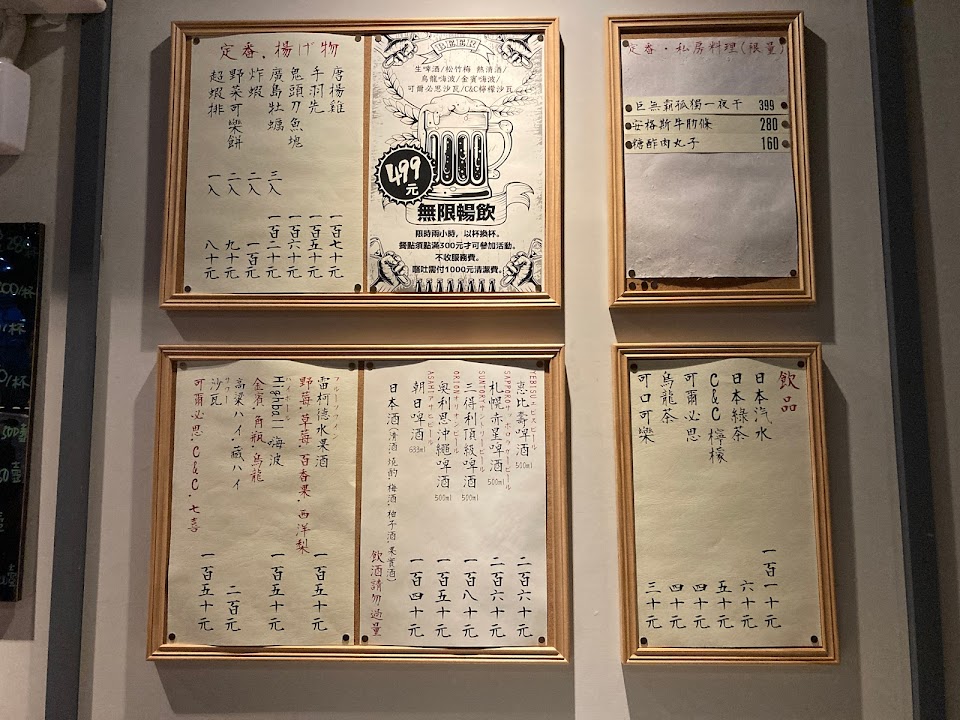 定番、揚げ物
唐楊雞 一百七十元
手羽先 一百五十元
鬼頭刀魚塊 一百六十元
廣島牡蠣 三入 一百二十元
炸蝦 二入 一百元
野菜可樂餅 二入 九十元
超蝦排 一入 八十元
BEER
生啤酒/松竹梅 熱清酒/
烏龍嗨波/金賓嗨波/
可爾必思沙瓦/C&C檸檬沙瓦
499元
無限暢飲
限時兩小時，以杯換杯。
餐點須點滿300元才可參加活動。
不收服務費。
嘔吐需付1000元清潔費。
定番・私房料理(限量)
巨無霸孤獨一夜干 399
安格斯牛肋條 280
糖酢肉丸子 160
YEBISU エビスビール
惠比壽啤酒 500ml 二百六十元
SAPPORO サッポロラガービール
札幌赤星啤酒 500ml 二百六十元
SUNTORY サントリービール
三得利頂級啤酒 500ml 一百八十元
ORION オリオンビール
奧利恩沖繩啤酒 500ml 一百五十元
ASAHI アサヒビール
朝日啤酒 633ml 一百四十元
日本酒(清酒.燒酌.梅酒.柚子酒.果實酒)
飲酒請勿過量
フルーツワイン
雷柯德水果酒 一百五十元
野莓.草莓.百香果.西洋梨
ハイボール
Highball 嗨波 一百五十元
金賓.角瓶.烏龍
高粱ハイ.二藏ハイ 二百元
サワー
沙瓦 一百五十元
可爾必思.C&C.七喜
飲品
日本汽水 一百一十元
日本綠茶 六十元
C&C檸檬 五十元
可爾必思 四十元
烏龍茶 四十元
可口可樂 三十元